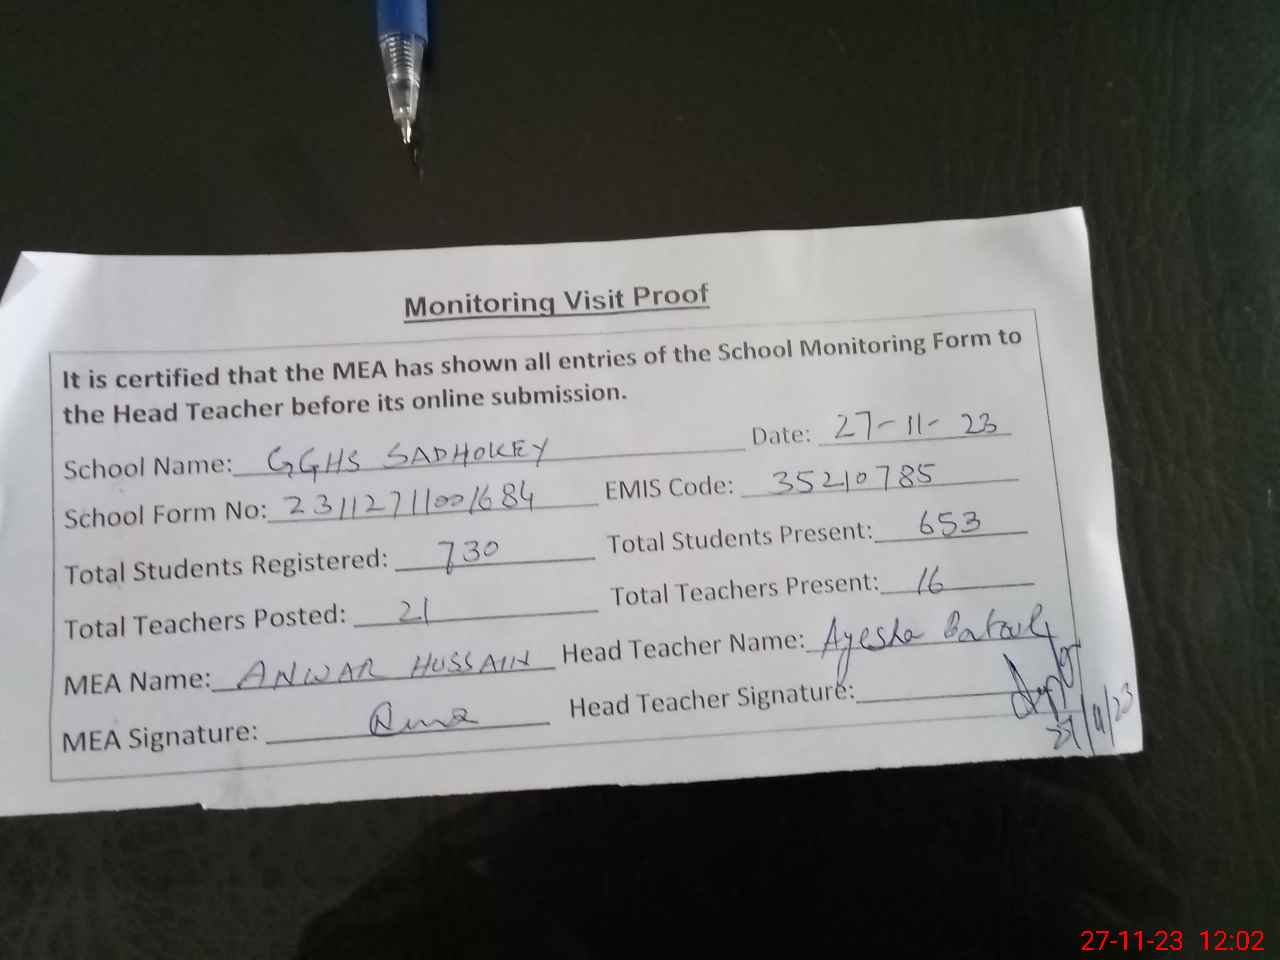 Monitoring Visit Proof
It is certified that the MEA has shown all entries of the School Monitoring Form to
the Head Teacher before its online submission.
School Name: GGHS SADHOKEY Date: 27-11-23
School Form No: 23112711001684 EMIS Code: 35210785
Total Students Registered: 730 Total Students Present: 653
Total Teachers Posted: 21 Total Teachers Present: 16
MEA Name: ANWAR HUSSAIN Head Teacher Name: Ayesha
MEA Signature: Head Teacher Signature:
27/11/23
27-11-23 12:02